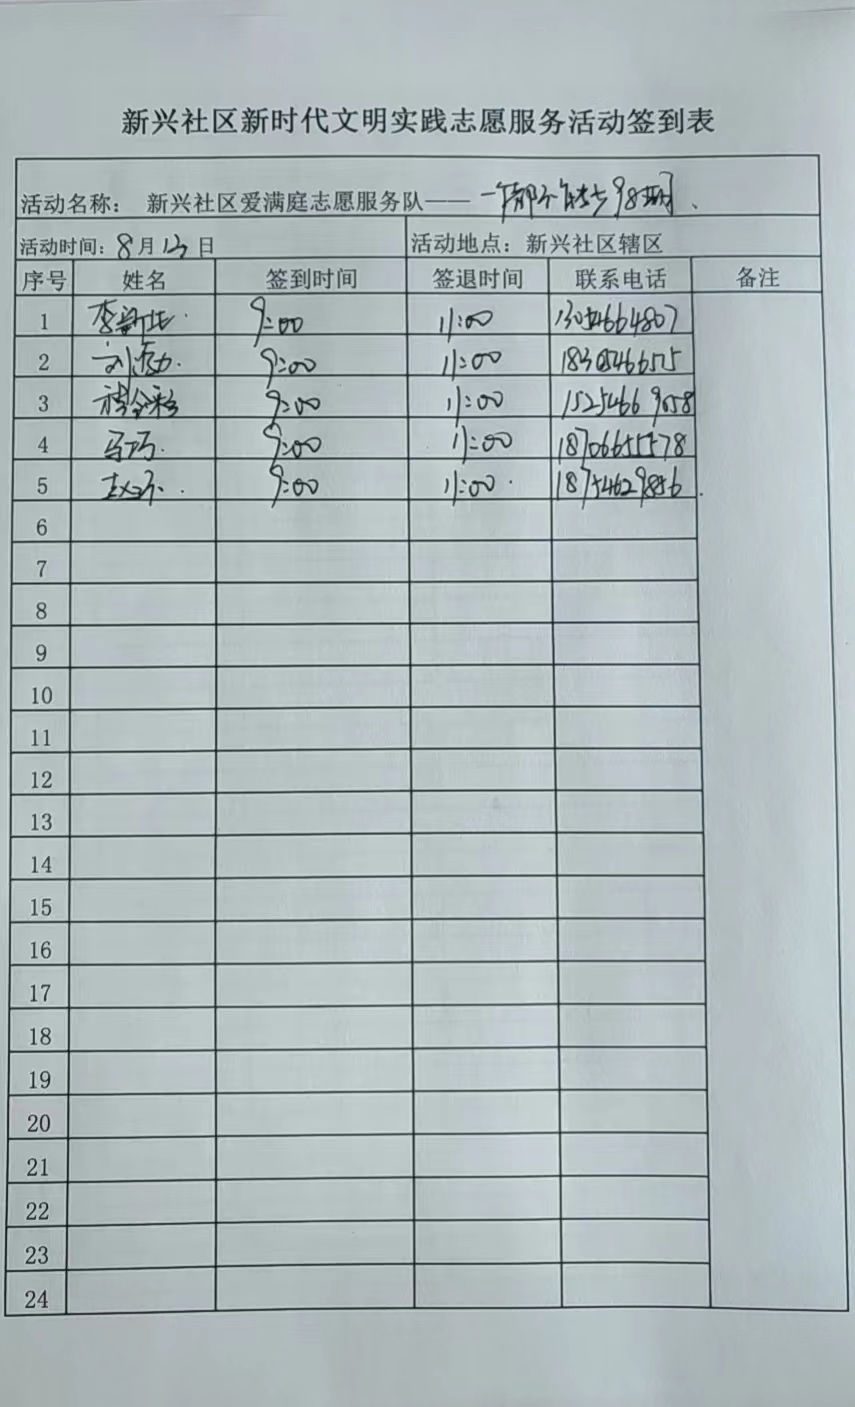 新兴社区新时代文明实践志愿服务活动签到表
活动名称： 新兴社区爱满庭志愿服务队—— 一个都不能少98期、
活动时间：8月13日 活动地点：新兴社区辖区
序号 姓名 签到时间 签退时间 联系电话 备注
1 9:00 11:00 13054664807
2 9:00 11:00
3 9:00 11:00 15254669058
4 马巧 9:00 11:00 18706655578
5 9:00 11:00 18754629856
6
7
8
9
10
11
12
13
14
15
16
17
18
19
20
21
22
23
24